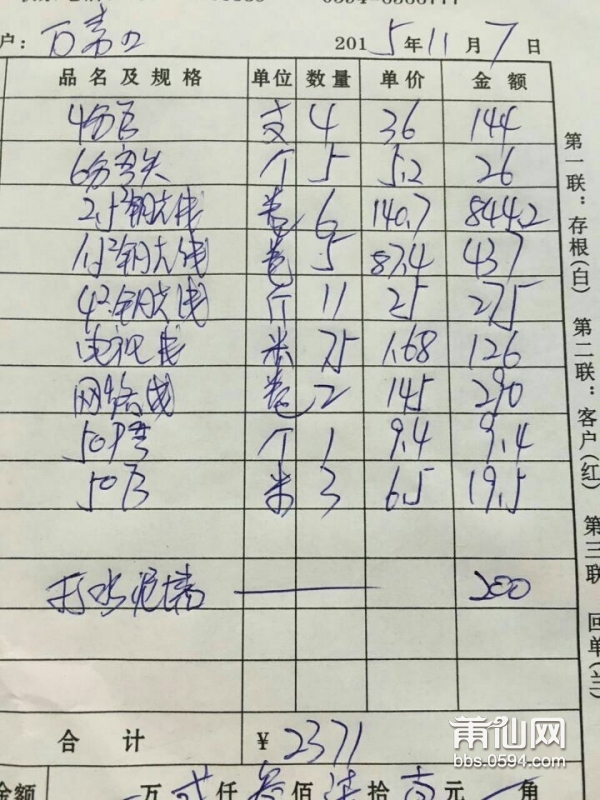 户：万
2015年11月7日
品名及规格 单位 数量 单价 金额
4分管 支 4 36 144
6分弯头 个 5 5.2 26
2.5²铜芯线 卷 6 140.7 844.2
1.5²铜芯线 卷 5 87.4 437
4²铜芯线 个 11 25 275
电视线 米 75 1.68 126
网络线 卷 2 145 290
50P弯 个 1 9.4 9.4
50管 米 3 6.5 19.5
打水泥墙 200
合计 ￥2371
金额 万 贰仟叁佰柒拾壹元 角
第一联：存根(白) 第二联：客户(红) 第三联 回单(兰)
莆仙网
bbs.0594.com